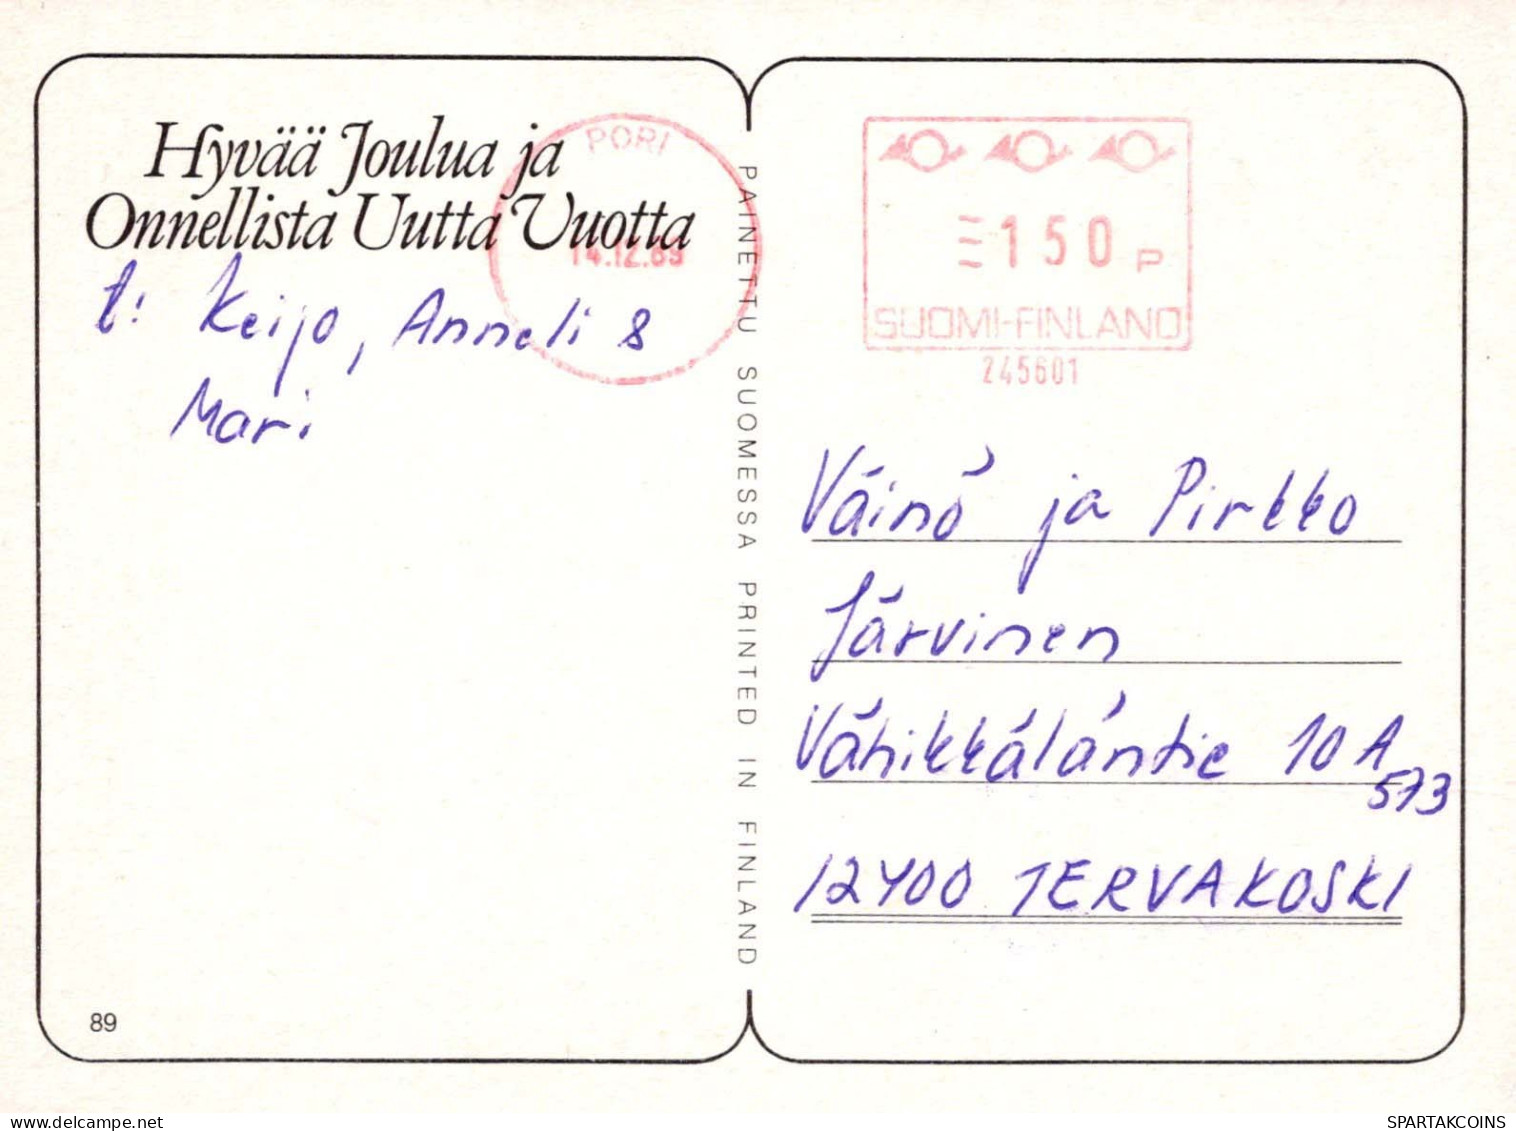 Hyvää Joulua ja
Onnellista Uutta Vuotta
t: Keijo, Anneli &
Mari
89
PORI
14.12.89
PAINETTU SUOMESSA PRINTED IN FINLAND
150 P
SUOMI-FINLAND
245601
Väinö ja Pirkko
Järvinen
Vähikkäläntie 10 A
573
12400 TERVAKOSKI
delcampe.net
SPARTAKCOINS